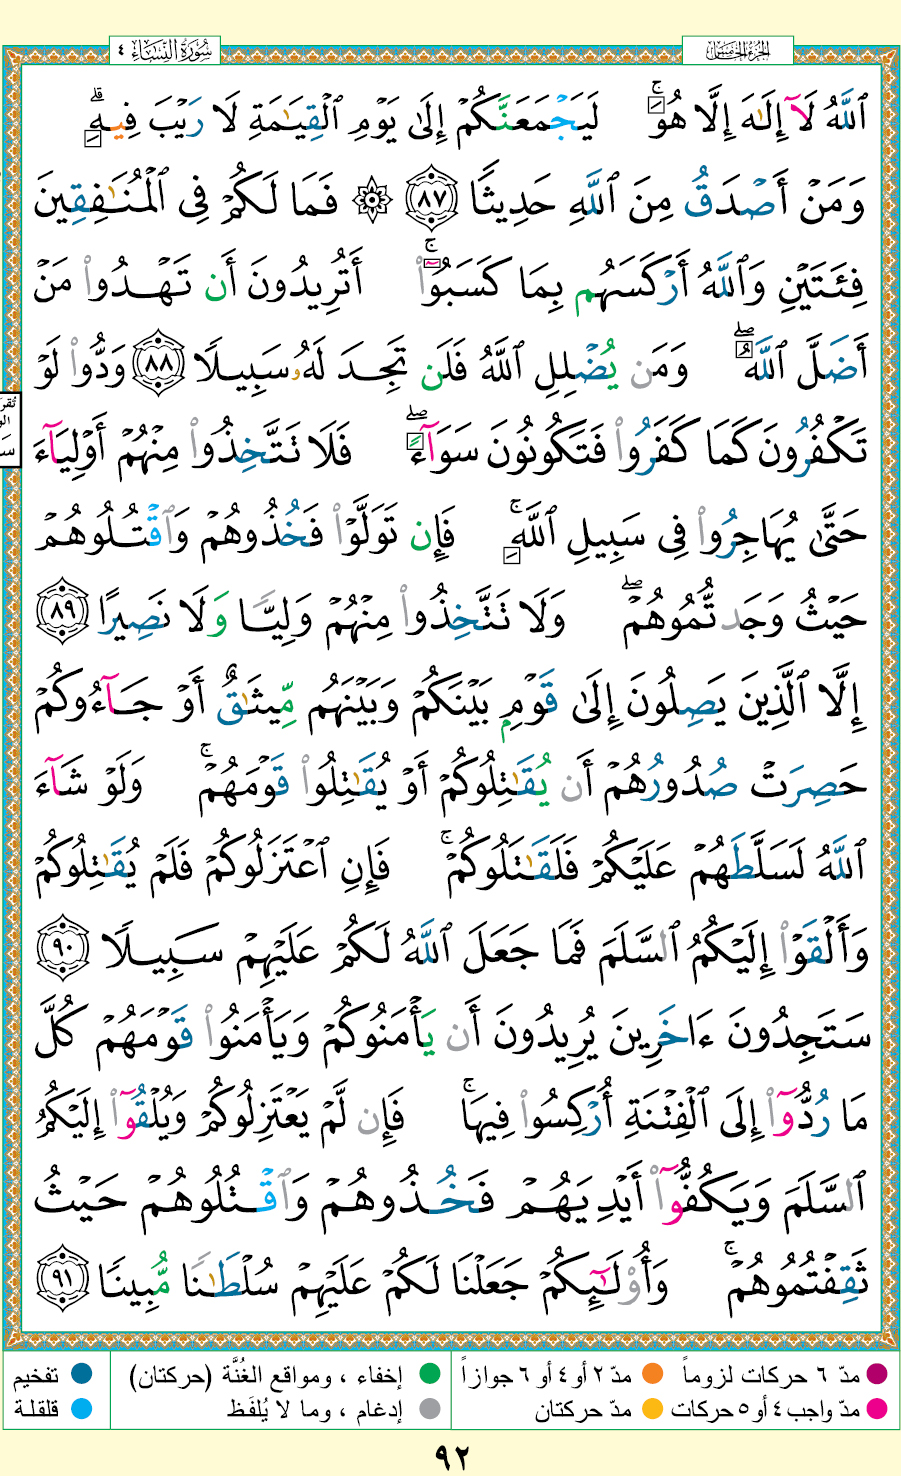 سُورَةُ النِّسَاء ٤
الجُزءُ الخَامِسُ
ٱللَّهُ لَآ إِلَـٰهَ إِلَّا هُوَۚ لَيَجۡمَعَنَّكُمۡ إِلَىٰ يَوۡمِ ٱلۡقِيَـٰمَةِ لَا رَيۡبَ فِيهِۗ
وَمَنۡ أَصۡدَقُ مِنَ ٱللَّهِ حَدِيثًا ٨٧ ۞ فَمَا لَكُمۡ فِى ٱلۡمُنَـٰفِقِينَ
فِئَتَيۡنِ وَٱللَّهُ أَرۡكَسَهُم بِمَا كَسَبُوٓاْۚ أَتُرِيدُونَ أَن تَهۡدُواْ مَنۡ
أَضَلَّ ٱللَّهُۖ وَمَن يُضۡلِلِ ٱللَّهُ فَلَن تَجِدَ لَهُۥ سَبِيلًا ٨٨ وَدُّواْ لَوۡ
تَكۡفُرُونَ كَمَا كَفَرُواْ فَتَكُونُونَ سَوَآءًۖ فَلَا تَتَّخِذُواْ مِنۡهُمۡ أَوۡلِيَآءَ
حَتَّىٰ يُهَاجِرُواْ فِى سَبِيلِ ٱللَّهِۚ فَإِن تَوَلَّوۡاْ فَخُذُوهُمۡ وَٱقۡتُلُوهُمۡ
حَيۡثُ وَجَدتُّمُوهُمۡۖ وَلَا تَتَّخِذُواْ مِنۡهُمۡ وَلِيًّا وَلَا نَصِيرًا ٨٩
إِلَّا ٱلَّذِينَ يَصِلُونَ إِلَىٰ قَوۡمِۭ بَيۡنَكُمۡ وَبَيۡنَهُم مِّيثَـٰقٌ أَوۡ جَآءُوكُمۡ
حَصِرَتۡ صُدُورُهُمۡ أَن يُقَـٰتِلُوكُمۡ أَوۡ يُقَـٰتِلُواْ قَوۡمَهُمۡۚ وَلَوۡ شَآءَ
ٱللَّهُ لَسَلَّطَهُمۡ عَلَيۡكُمۡ فَلَقَـٰتَلُوكُمۡۚ فَإِنِ ٱعۡتَزَلُوكُمۡ فَلَمۡ يُقَـٰتِلُوكُمۡ
وَأَلۡقَوۡاْ إِلَيۡكُمُ ٱلسَّلَمَ فَمَا جَعَلَ ٱللَّهُ لَكُمۡ عَلَيۡهِمۡ سَبِيلًا ٩٠
سَتَجِدُونَ ءَاخَرِينَ يُرِيدُونَ أَن يَأۡمَنُوكُمۡ وَيَأۡمَنُواْ قَوۡمَهُمۡ كُلَّ
مَا رُدُّوٓاْ إِلَى ٱلۡفِتۡنَةِ أُرۡكِسُواْ فِيهَاۚ فَإِن لَّمۡ يَعۡتَزِلُوكُمۡ وَيُلۡقُوٓاْ إِلَيۡكُمُ
ٱلسَّلَمَ وَيَكُفُّوٓاْ أَيۡدِيَهُمۡ فَخُذُوهُمۡ وَٱقۡتُلُوهُمۡ حَيۡثُ
ثَقِفۡتُمُوهُمۡۚ وَأُوْلَـٰٓئِكُمۡ جَعَلۡنَا لَكُمۡ عَلَيۡهِمۡ سُلۡطَـٰنًا مُّبِينًا ٩١
مدّ ٦ حركات لزوماً مدّ ٢ أو ٤ أو ٦ جوازاً إخفاء ، ومواقع الغُنَّة (حركتان) تفخيم
مدّ واجب ٤ أو ٥ حركات مدّ حركتان إدغام ، وما لا يُلفَظ قلقلة
٩٢